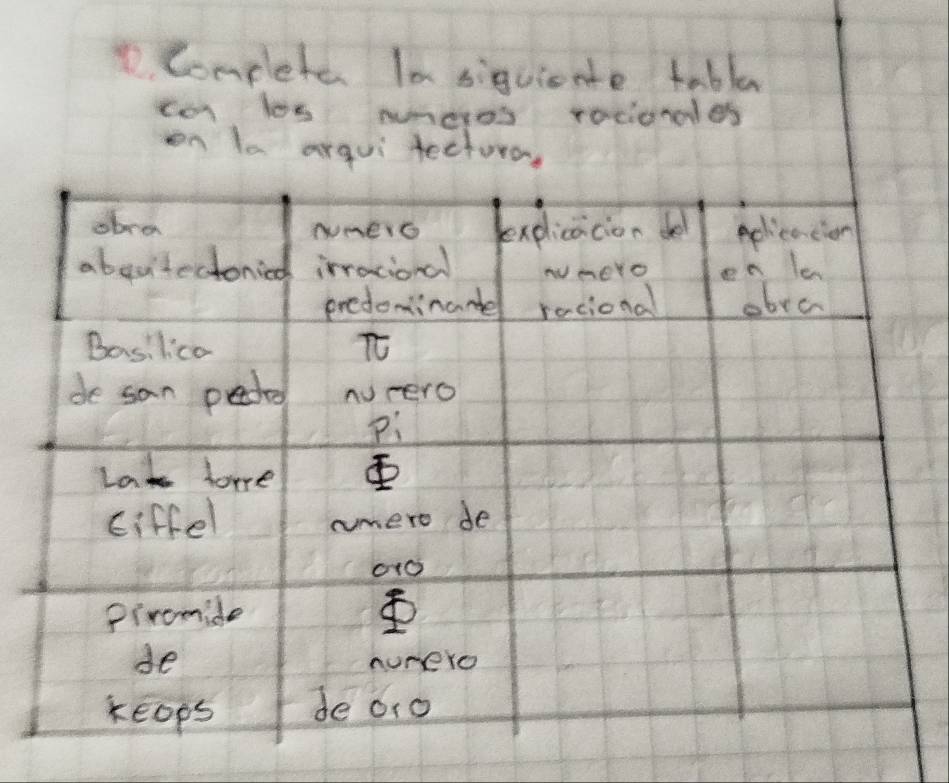 2. Completa la siguiente tabla
con los numeros racionales
en la arquitectura.
obra numero explicación del aplicacion
abquitectonica irracional numero en la
predominante racional obra
Basilica π
de san pedro numero
Pi
La torre Φ
Eiffel numero de
oro
Piramide Φ
de numero
keops de oro